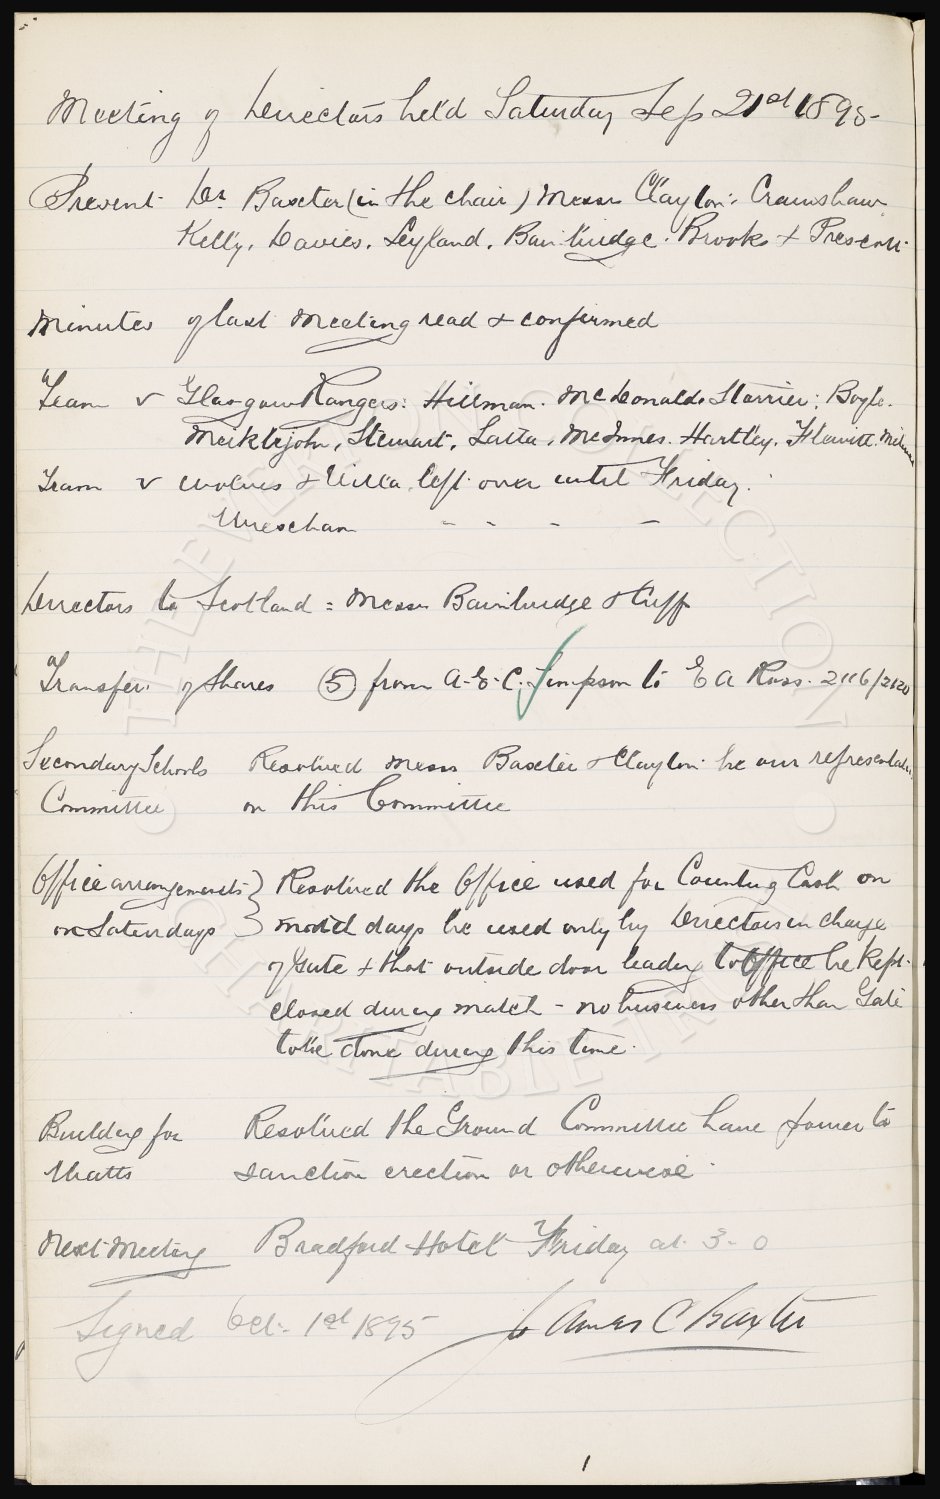 Meeting of Directors held Saturday Sep 21st 1895
Present Dr. Baxter (in the chair) Messrs Clayton. Crawshaw
Kelly. Davies. Leyland. Bainbridge. Brooks + Prescott
Minutes of last meeting read + confirmed
Team v Glasgow Rangers: Hillman. McDonald. Storrier: Boyle.
Meiklejohn, Stewart, Latta, McInnes. Hartley. Flewitt. Milward
Team v Wolves + Villa left over until Friday.
Wrexham - - - -
Directors to Scotland = Messrs Bainbridge + Cuff
Transfer of shares (5) from A.E.C. Simpson to E A Ross. 2116/2120
Secondary Schools Resolved Messrs Baxter + Clayton be our representatives
Committee on this Committee
Office arrangements } Resolved the Office used for Counting Cash on
on Saturdays } match days be used only by Directors in charge
of Gate + that outside door leading to Office be kept
closed during match - no business other than Gate
to be done during this time.
Building for Resolved the Ground Committee have power to
Watts sanction erection or otherwise.
Next Meeting Bradford Hotel Friday at 3-0
Signed Oct. 1st 1895 James C Baxter
THE EVERTON COLLECTION
CHARITABLE TRUST